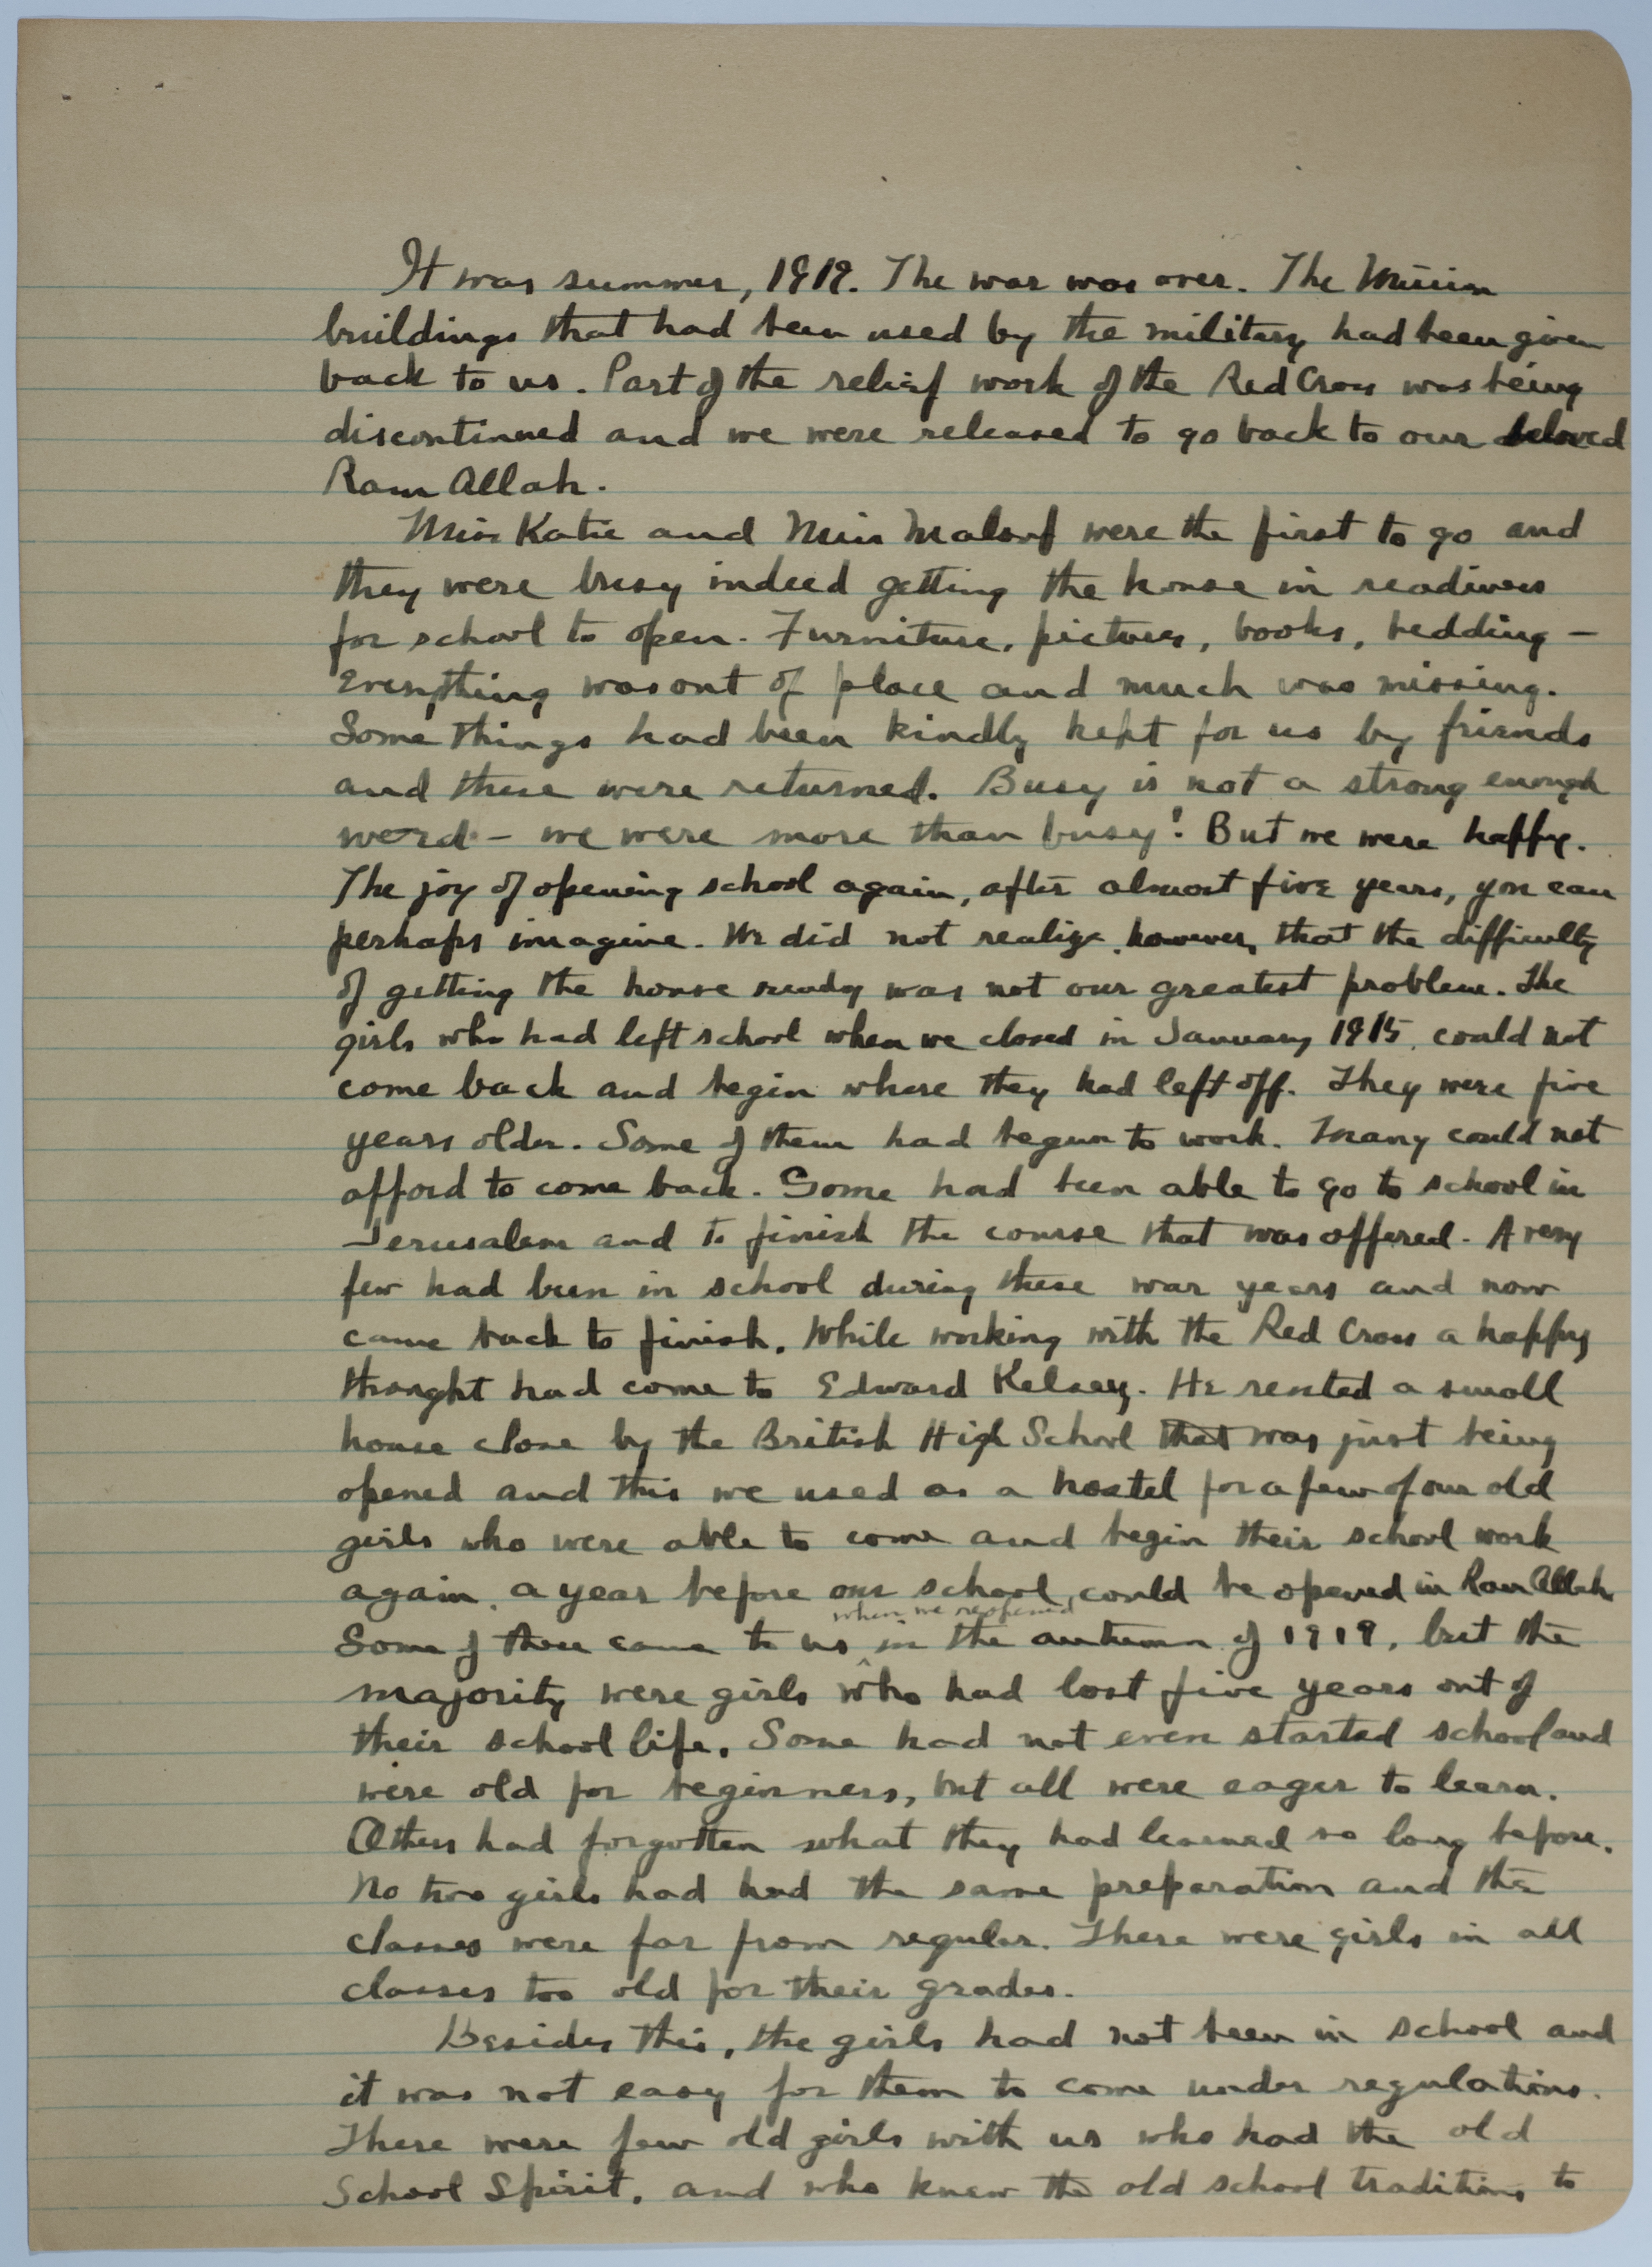 It was summer, 1919. The war was over. The Mission
buildings that had been used by the military had been given
back to us. Part of the relief work of the Red Cross was being
discontinued and we were released to go back to our beloved
Ram Allah.
Miss Katie and Miss Malouf were the first to go and
they were busy indeed getting the house in readiness
for school to open. Furniture, pictures, books, bedding –
everything was out of place and much was missing.
Some things had been kindly kept for us by friends
and these were returned. Busy is not a strong enough
word – we were more than busy! But we were happy.
The joy of opening school again, after almost five years, you can
perhaps imagine. We did not realize, however, that the difficulty
of getting the house ready was not our greatest problem. The
girls who had left school when we closed in January 1915, could not
come back and begin where they had left off. They were five
years older. Some of them had begun to work. Many could not
afford to come back. Some had been able to go to school in
Jerusalem and to finish the course that was offered. A very
few had been in school during these war years and now
came back to finish. While working with the Red Cross a happy
thought had come to Edward Kelsey. He rented a small
house close by the British High School that was just being
opened and this we used as a hostel for a few of our old
girls who were able to come and begin their school work
again, a year before our school could be opened in Ram Allah
when we reopened
Some of these came to us in the autumn of 1919, but the
majority were girls who had lost five years out of
their school life. Some had not even started school and
were old for beginners, but all were eager to learn.
Others had forgotten what they had learned so long before.
No two girls had had the same preparation and the
classes were far from regular. There were girls in all
classes too old for their grades.
Besides this, the girls had not been in school and
it was not easy for them to come under regulations.
There were few old girls with us who had the old
School Spirit, and who knew the old school traditions to